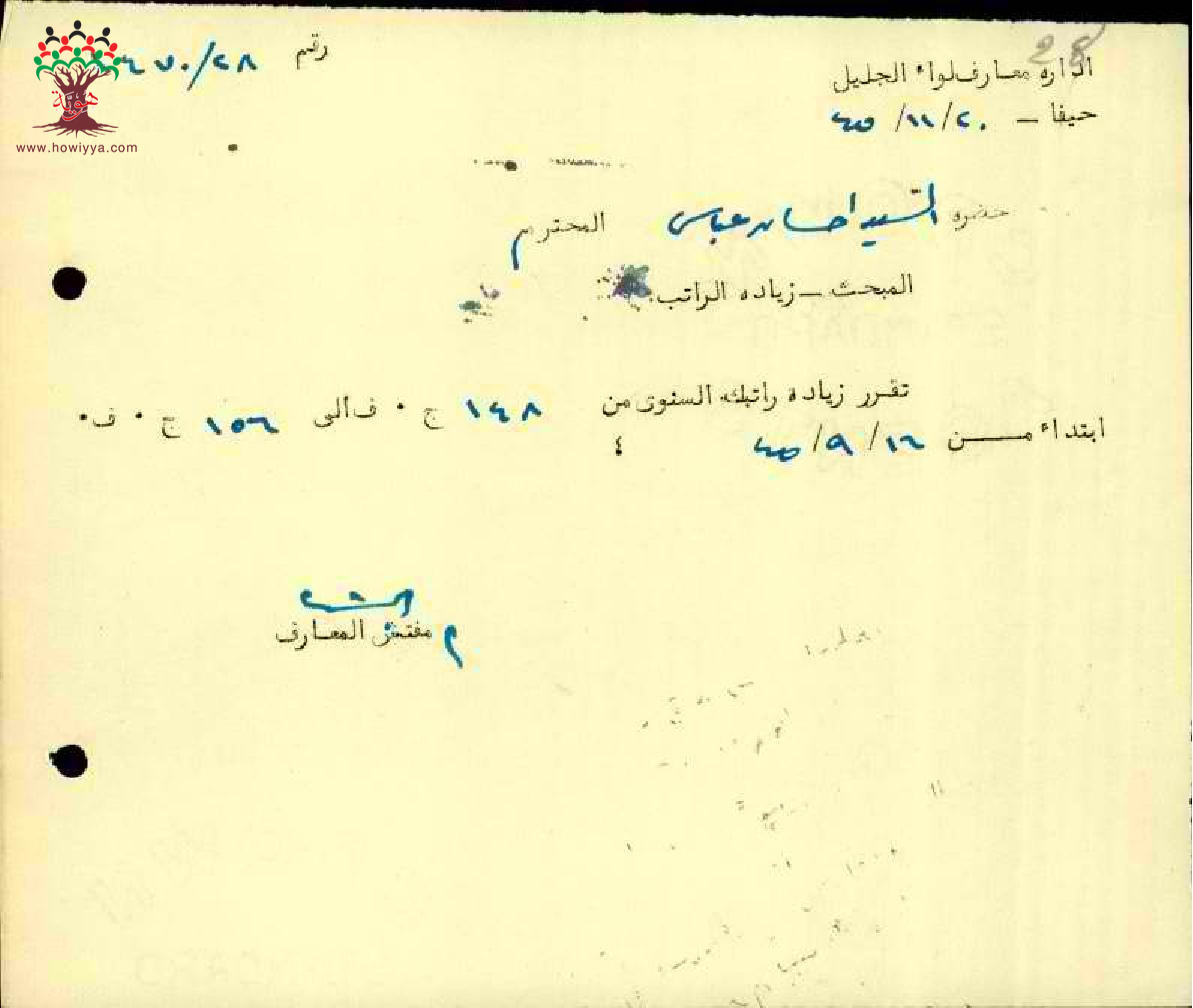 28
رقم ٤٧٠/٢٨
هوية
www.howiyya.com
اداره معارف لواء الجليل
حيفا - ٢٠/١١/٤٥
حضره السيد احسان عباس المحترم
المبحث - زياده الراتب
تقرر زياده راتبك السنوى من ١٤٨ ج ٠ ف الى ١٥٦ ج ٠ ف٠
ابتداء من ١٦/٩/٤٥ ٤
م مفتش المعارف